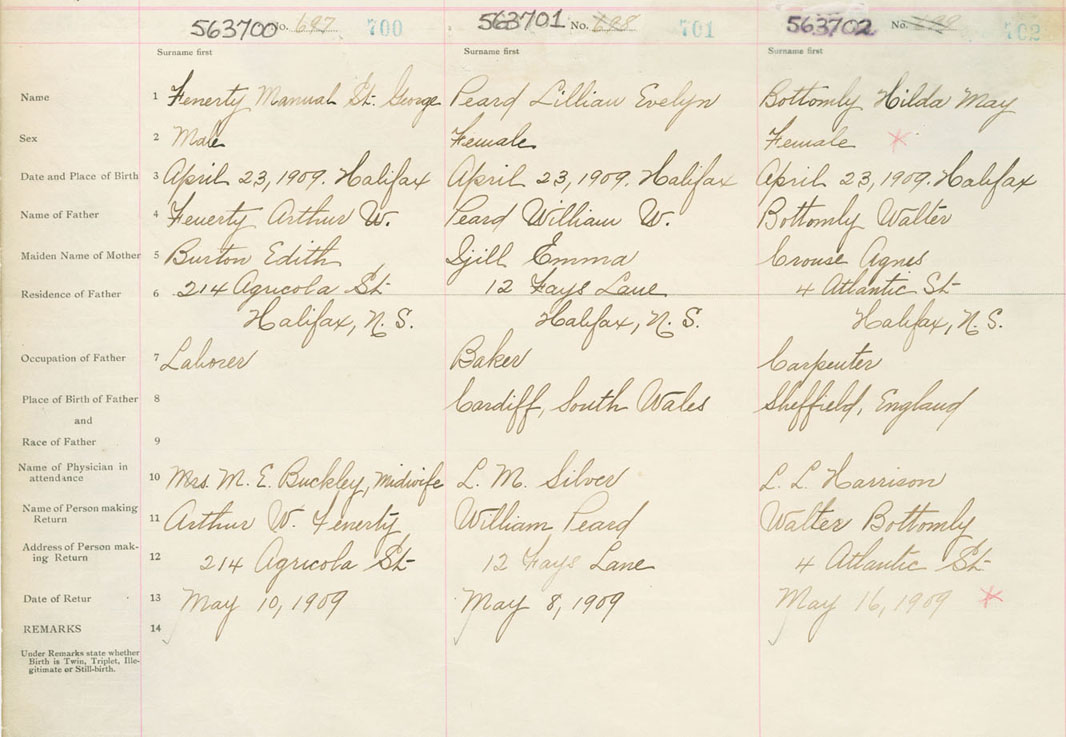 563700 No. 697 700 563701 No. 698 701 563702 No. 699 702
Surname first Surname first Surname first
Name 1 Fenerty Manual St. George Peard Lillian Evelyn Bottomly Hilda May
Sex 2 Male Female Female
Date and Place of Birth 3 April 23, 1909. Halifax April 23, 1909. Halifax April 23, 1909. Halifax
Name of Father 4 Fenerty Arthur W. Peard William W. Bottomly Walter
Maiden Name of Mother 5 Burton Edith Emma Crouse Agnes
Residence of Father 6 214 Agricola St. 12 Fays Lane 4 Atlantic St.
Halifax, N. S. Halifax, N. S. Halifax, N. S.
Occupation of Father 7 Laborer Baker Carpenter
Place of Birth of Father 8 Cardiff, South Wales Sheffield, England
and
Race of Father 9
Name of Physician in
attendance 10 Mrs. M. E. Buckley, midwife L. M. Silver L. L. Harrison
Name of Person making
Return 11 Arthur W. Fenerty William Peard Walter Bottomly
Address of Person mak-
ing Return 12 214 Agricola St. 12 Fays Lane 4 Atlantic St.
Date of Retur 13 May 10, 1909 May 8, 1909 May 16, 1909
REMARKS 14
Under Remarks state whether
Birth is Twin, Triplet, Ille-
gitimate or Still-birth.